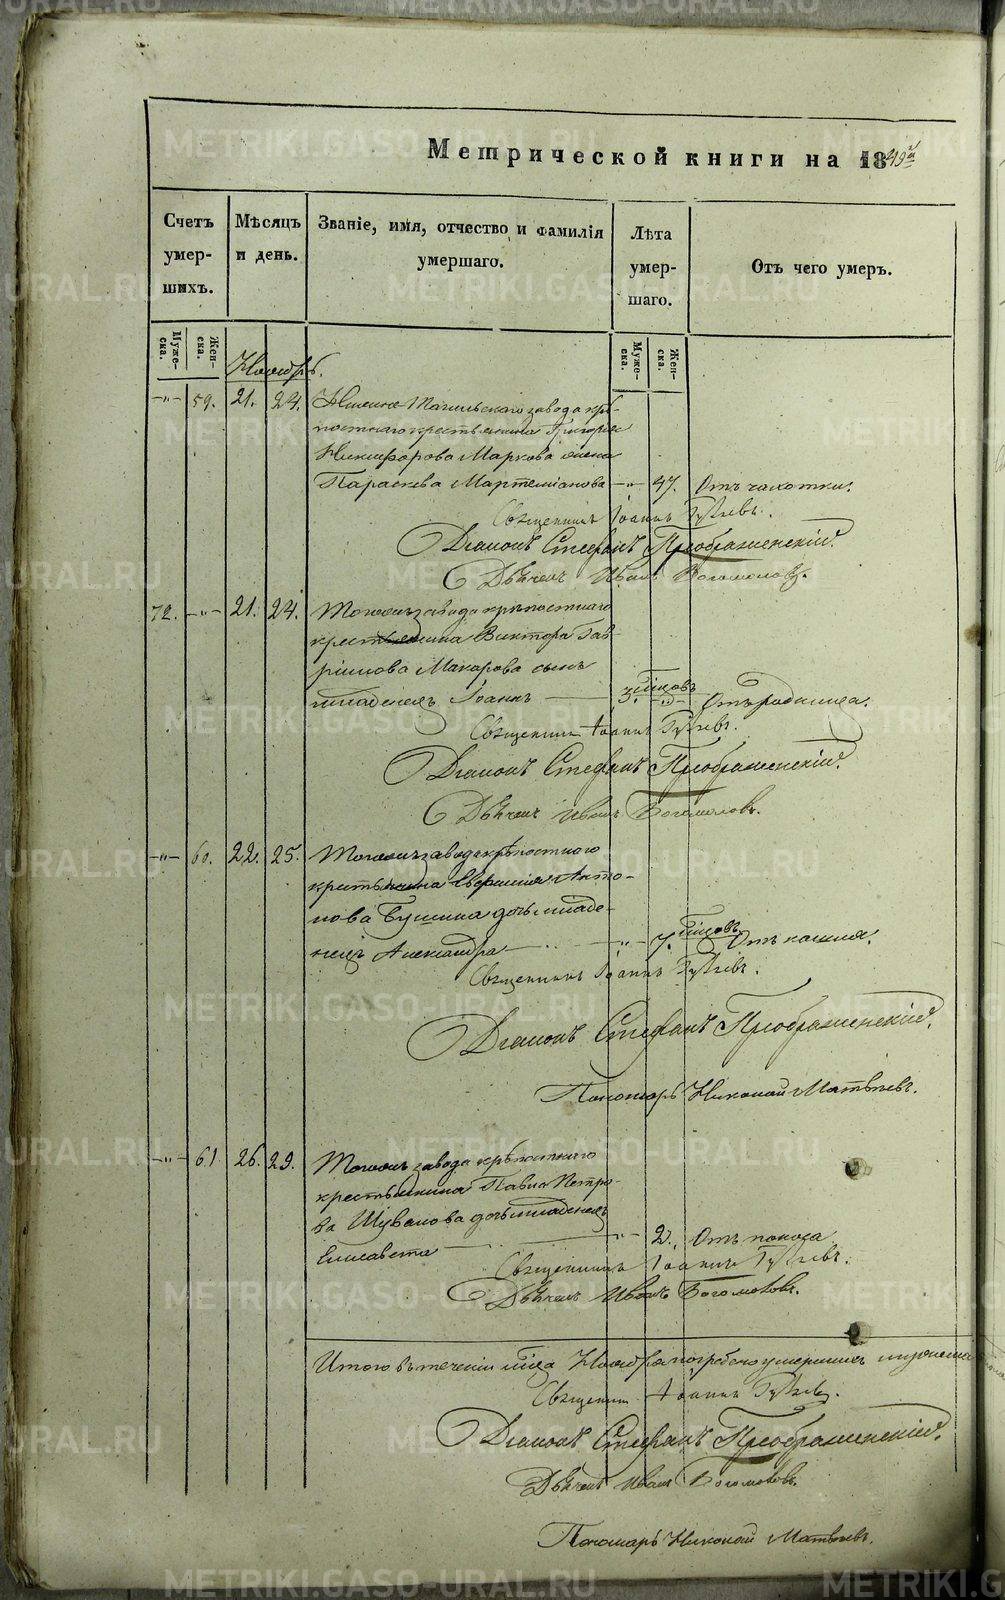 Метрической книги на 1849й
Счетъ умер- шихъ.
Мѣсяцъ и день.
Званіе, имя, отчество и фамилія умершаго.
Лѣта умер- шаго.
Отъ чего умеръ.
Муже- ска.
Жен- ска.
Муже- ска.
Жен- ска.
Ноябрь.
-"- 59. 21. 24. Нижне Тагильскаго завода крѣ-
постнаго крестьянина Григорья
Никифорова Маркова жена
Параскева Мартемианова -"- 47. Отъ чахотки.
Священникъ Іоаннъ
Діаконъ Стефанъ Преображенскій.
Дьячекъ Иванъ Богомоловъ.
72. -"- 21. 24. Тогожъ завода крѣпостнаго
крестьянина Виктора Гав-
рилова Макарова сынъ
младенецъ Іоаннъ 3. мѣсяцовъ -"- Отъ родимца.
Священникъ Іоаннъ
Діаконъ Стефанъ Преображенскій.
Дьячекъ Иванъ Богомоловъ.
-"- 60. 22. 25. Тогожъ завода крѣпостного
крестьянина Анто-
нова дочь младе-
нецъ Александра -"- 7. мѣсяцовъ Отъ кашля.
Священникъ Іоаннъ
Діаконъ Стефанъ Преображенскій.
Пономарь Николай Матвѣевъ.
-"- 61 26. 29. Тогожъ завода крѣпостнаго
крестьянина Павла Петро-
ва Шувалова дочь младенецъ
Елисавета -"- 2. Отъ поноса
Священникъ Іоаннъ
Дьячекъ Иванъ Богомоловъ.
Итого въ теченіи мѣсяца Ноября погребено умершихъ
Священникъ Іоаннъ
Діаконъ Стефанъ Преображенскій.
Дьячекъ Иванъ Богомоловъ.
Пономарь Николай Матвѣевъ.
METRIKI.GASO-URAL.RU